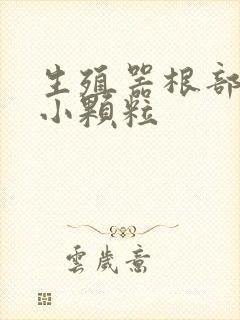 生殖器根部
小颗粒
雲歲意